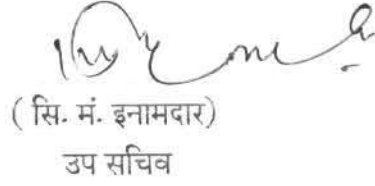 ( सि. मं. इनामदार)
उप सचिव